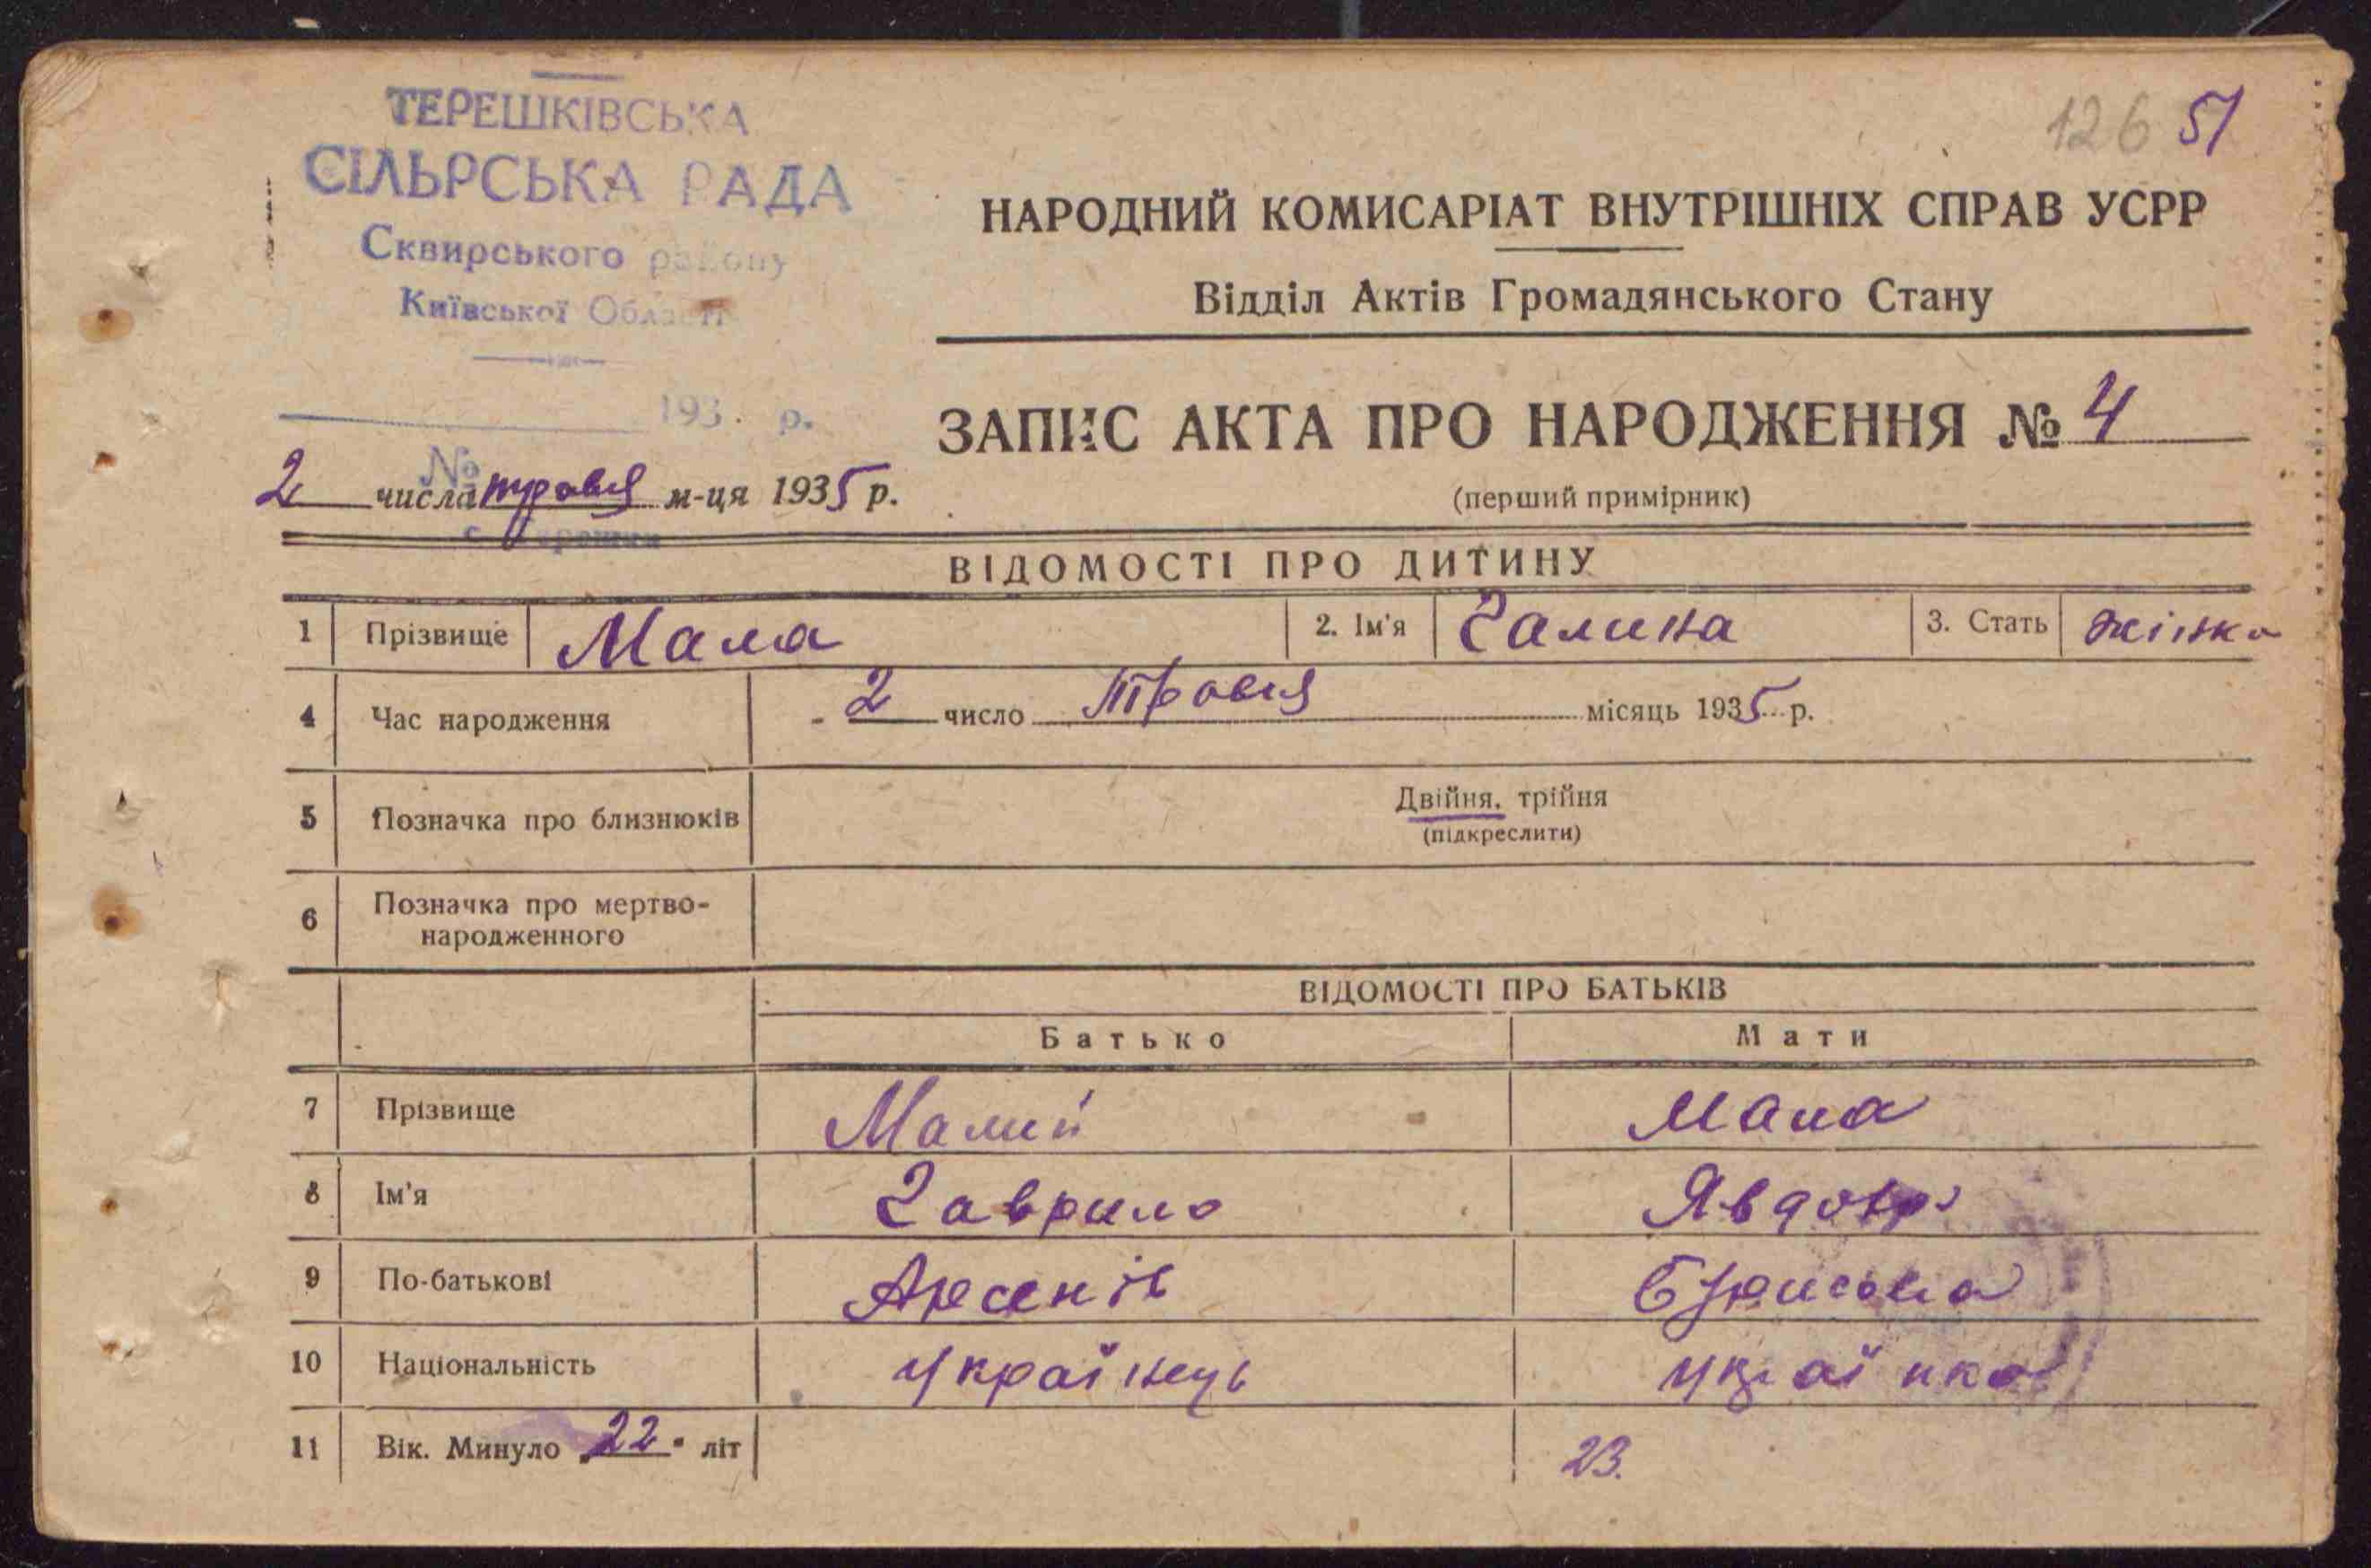 ТЕРЕШКІВСЬКА
СІЛЬРСЬКА РАДА
Сквирського району
Київської Області
126 51
НАРОДНИЙ КОМИСАРІАТ ВНУТРІШНІХ СПРАВ УСРР
Відділ Актів Громадянського Стану
193 . р.
ЗАПИС АКТА ПРО НАРОДЖЕННЯ № 4
№
2 числа травня м-ця 1935 р.
(перший примірник)
ВІДОМОСТІ ПРО ДИТИНУ
1 Прізвище Мала 2. Ім'я Галина 3. Стать жінка
4 Час народження 2 число Травня місяць 1935 р.
5 Позначка про близнюків Двійня, трійня
(підкреслити)
6 Позначка про мертво-
народженного
ВІДОМОСТІ ПРО БАТЬКІВ
Батько Мати
7 Прізвище Малий Мала
8 Ім'я Гаврило Явдоха
9 По-батькові Арсенів
10 Національність Українець Українка
11 Вік. Минуло 22 літ 23.